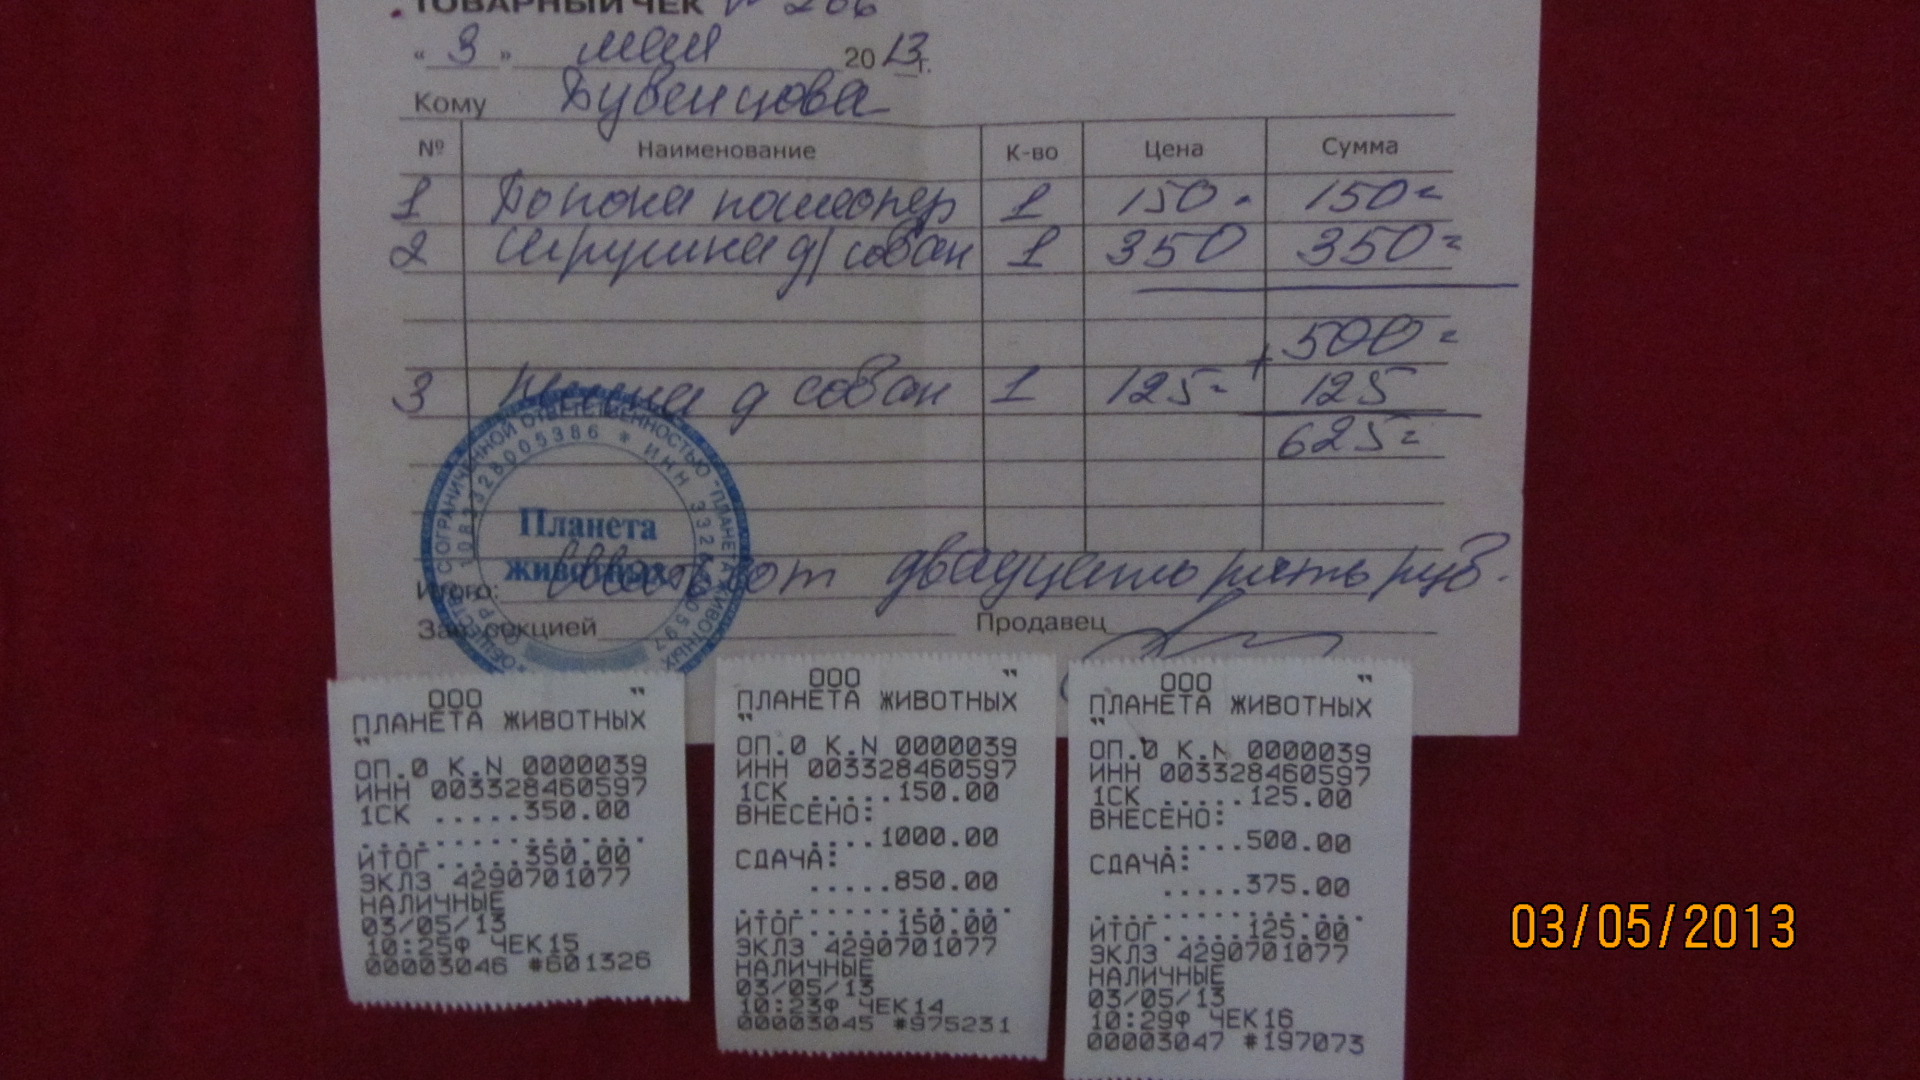 ТОВАРНЫЙ ЧЕК № 206
" 3 " мая 2013 г.
Кому Дувенцова
№ Наименование К-во Цена Сумма
1 Попона послеопер 1 150- 150=
2 Игрушка д/ собак 1 350 350=
500=
3 д собак 1 125= + 125
625=
Планета
животных
Итого: двадцать пять руб.
Зав. секцией Продавец
ООО "
ПЛАНЕТА ЖИВОТНЫХ
"
ОП.0 К.N 0000039
ИНН 003328460597
1СК .....350.00
ИТОГ.....350.00
ЭКЛЗ 4290701077
НАЛИЧНЫЕ
03/05/13
10:25Ф ЧЕК15
00003046 #601326
ООО "
ПЛАНЕТА ЖИВОТНЫХ
"
ОП.0 К.N 0000039
ИНН 003328460597
1СК .....150.00
ВНЕСЕНО:
....1000.00
СДАЧА:
.....850.00
ИТОГ.....150.00
ЭКЛЗ 4290701077
НАЛИЧНЫЕ
03/05/13
10:23Ф ЧЕК14
00003045 #975231
ООО "
ПЛАНЕТА ЖИВОТНЫХ
"
ОП.0 К.N 0000039
ИНН 003328460597
1СК .....125.00
ВНЕСЕНО:
.....500.00
СДАЧА:
.....375.00
ИТОГ.....125.00
ЭКЛЗ 4290701077
НАЛИЧНЫЕ
03/05/13
10:29Ф ЧЕК16
00003047 #197073
03/05/2013